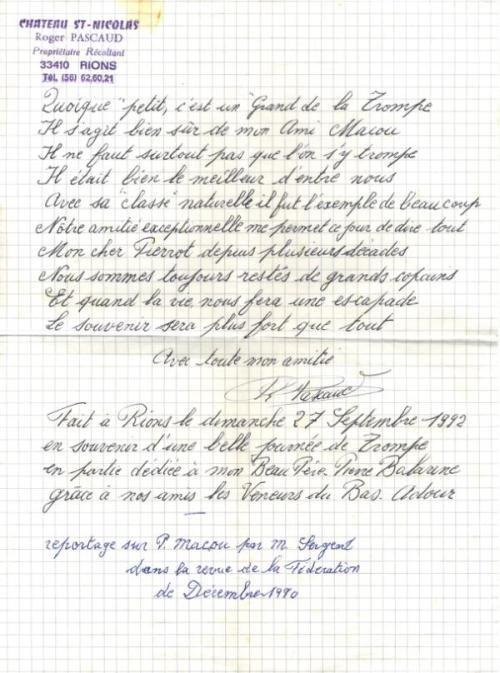 CHATEAU ST-NICOLAS
Roger PASCAUD
Propriétaire Récoltant
33410 RIONS
Tél. (56) 62.60.21
Quoique "petit, c'est un "Grand de la Trompe
Il s'agit bien sûr de mon Ami Macou
Il ne faut surtout pas que l'on s'y trompe
Il était bien le meilleur d'entre nous
Avec sa "classe" naturelle il fut l'exemple de beaucoup
Notre amitié exceptionnelle me permet ce jour de dire tout
Mon cher Pierrot depuis plusieurs décades
Nous sommes toujours restés de grands copains
Et quand la vie nous fera une escapade
Le souvenir sera plus fort que tout
Avec toute mon amitié
R. Pascaud
Fait à Rions le dimanche 27 Septembre 1992
en souvenir d'une belle journée de Trompe
en partie dédiée à mon Beau Père Pierre
grâce à nos amis les Veneurs du Bas. Adour
reportage sur P. Macou par M. Sergent
dans la revue de la Fédération
de Décembre 1990